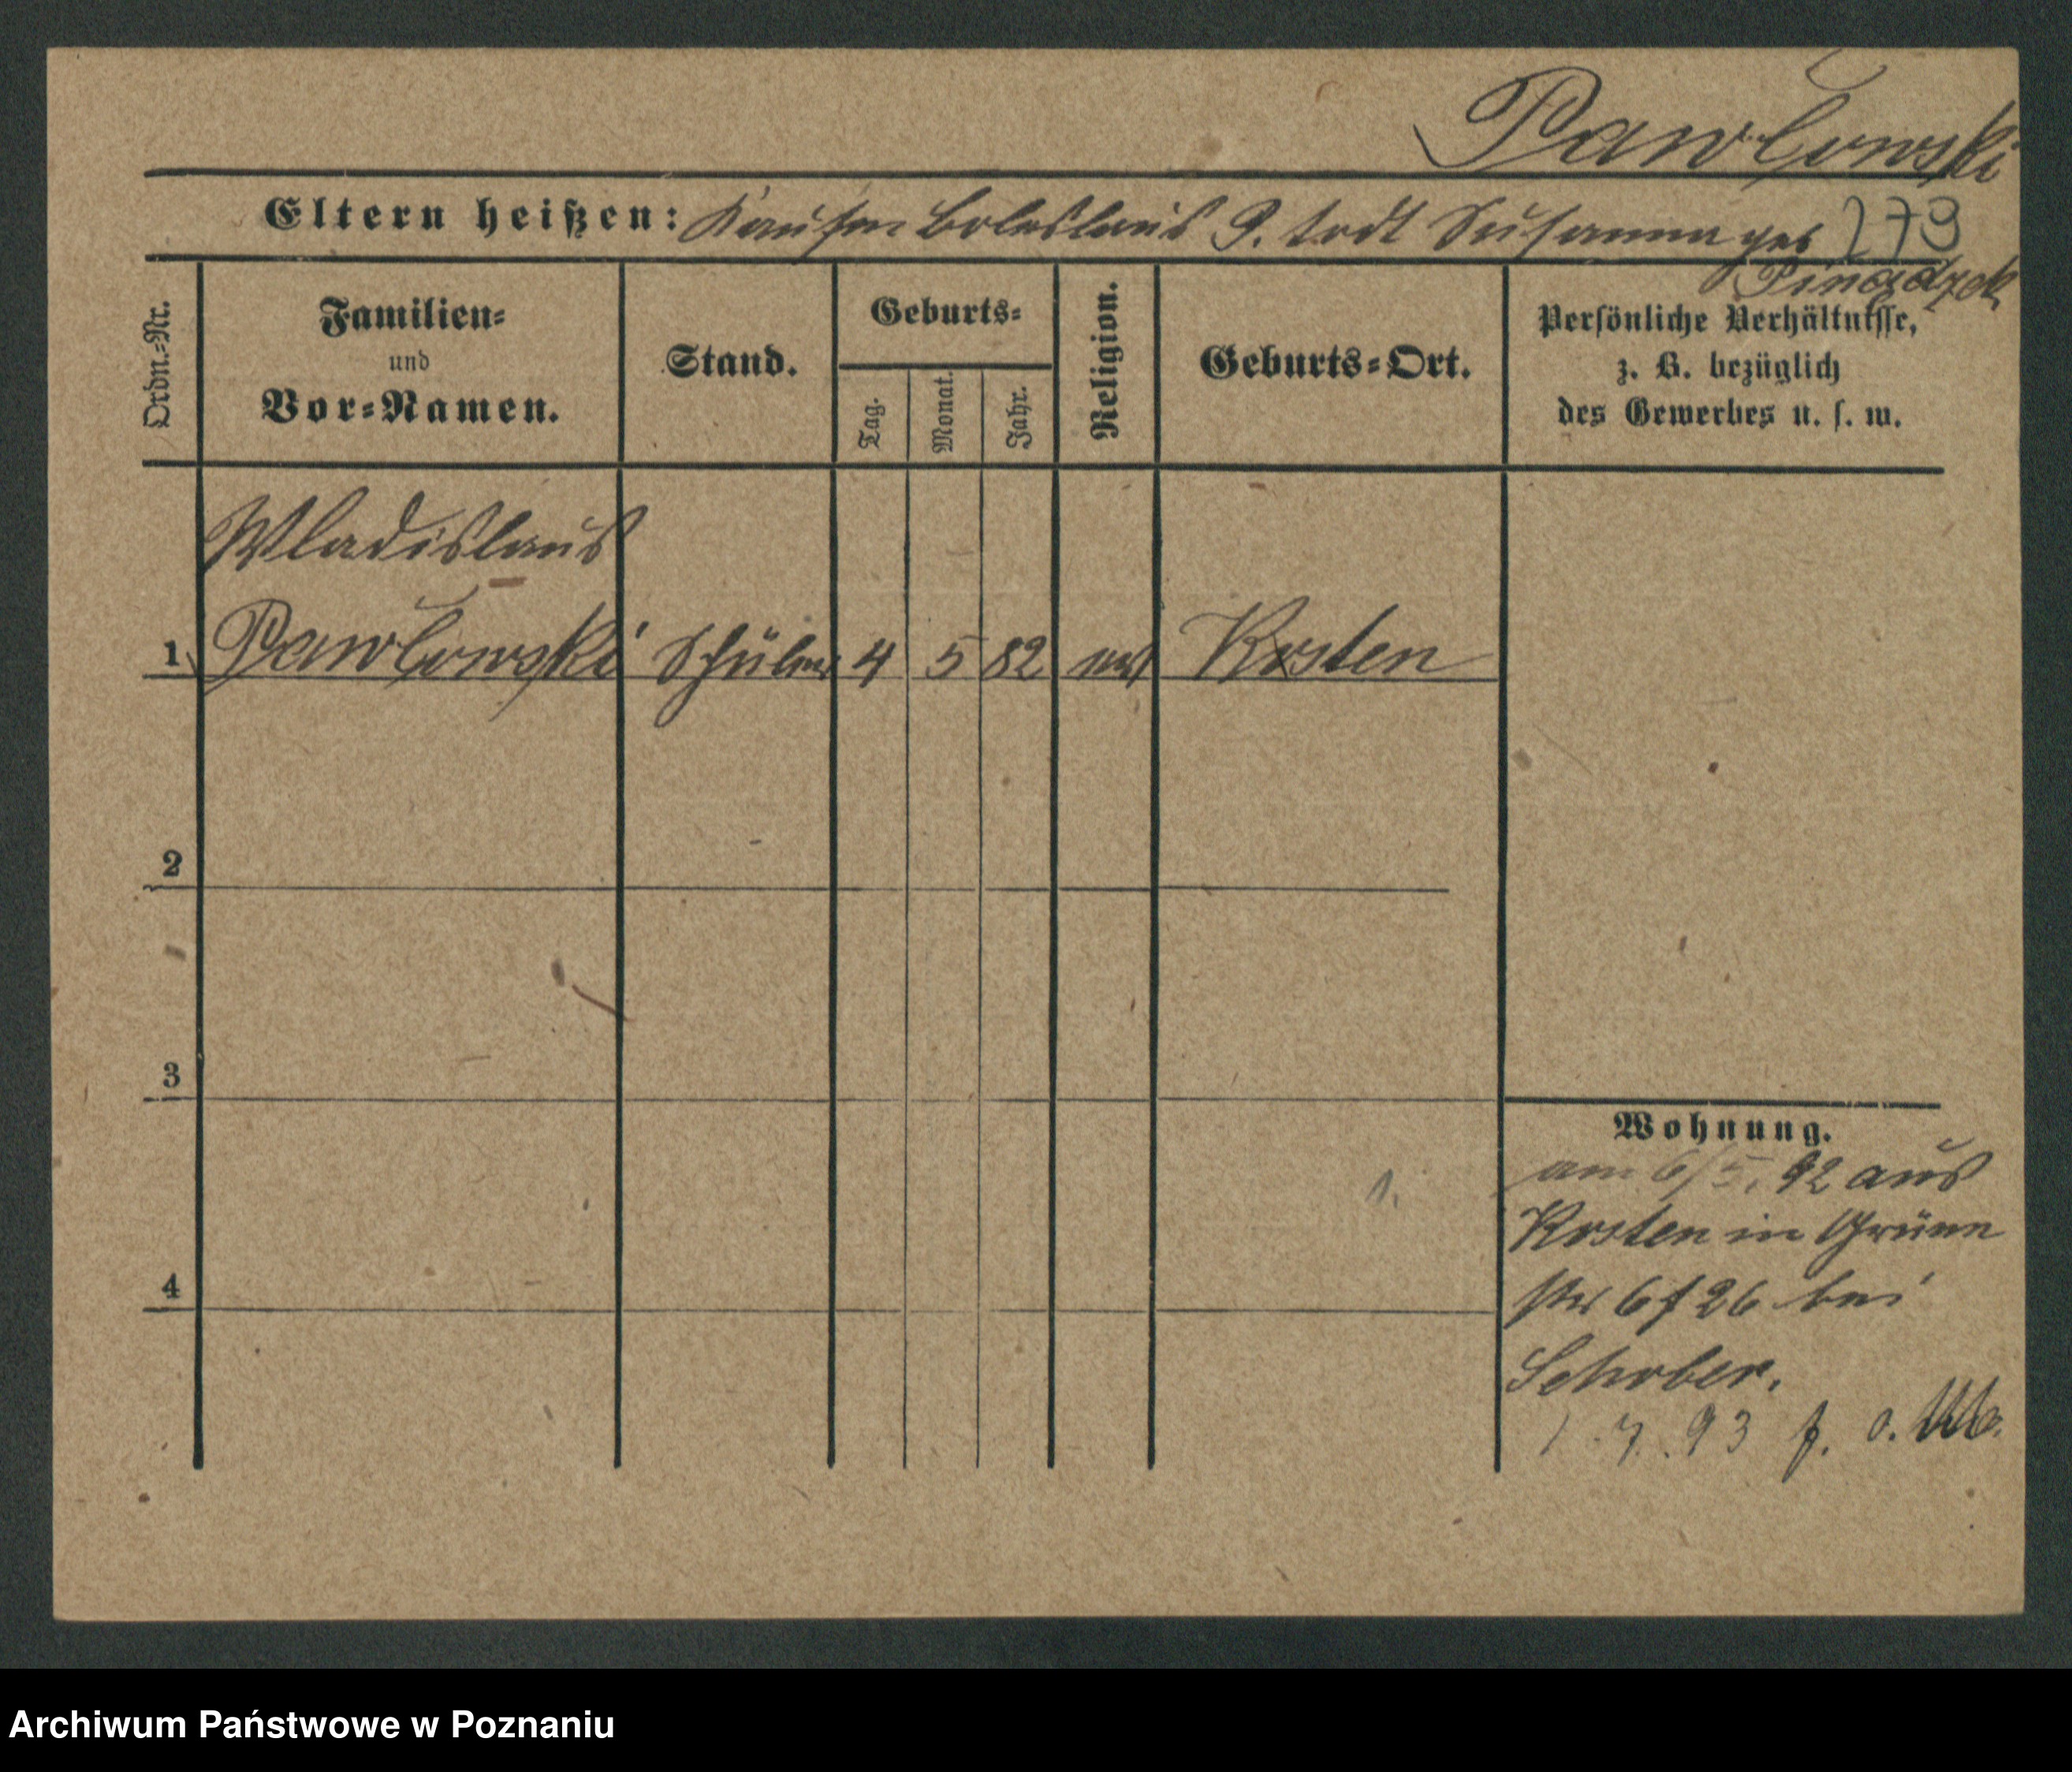 Pawlowski
Eltern heißen: Kaufm Boleslaus P. todt Susanna geb 279
Ordn.-Nr.
Familien-
und
Vor-Namen.
Stand.
Geburts-
Tag.
Monat.
Jahr.
Religion.
Geburts-Ort.
Persönliche Verhältnisse,
z. B. bezüglich
des Gewerbes u. s. w.
Wladislaus
1 Pawlowski Schüler 4 5 82 Kosten
2
3
4
Wohnung.
am 6/5. 92 aus
Kosten in Grüne
str 6 f 26 bei
Schober.
1.7.93 f. o.
1.
Archiwum Państwowe w Poznaniu